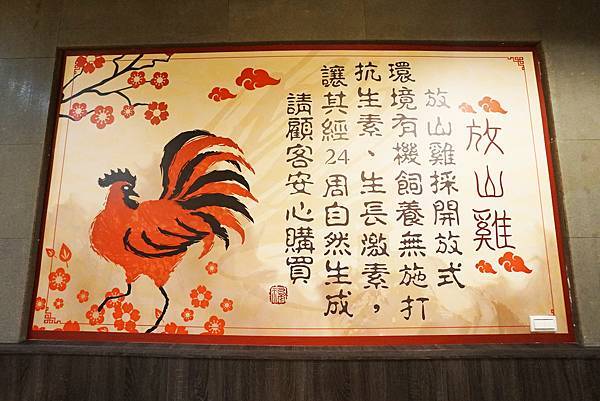 放山雞
放山雞採開放式
環境有機飼養無施打
抗生素、生長激素，
讓其經24周自然生成
請顧客安心購買